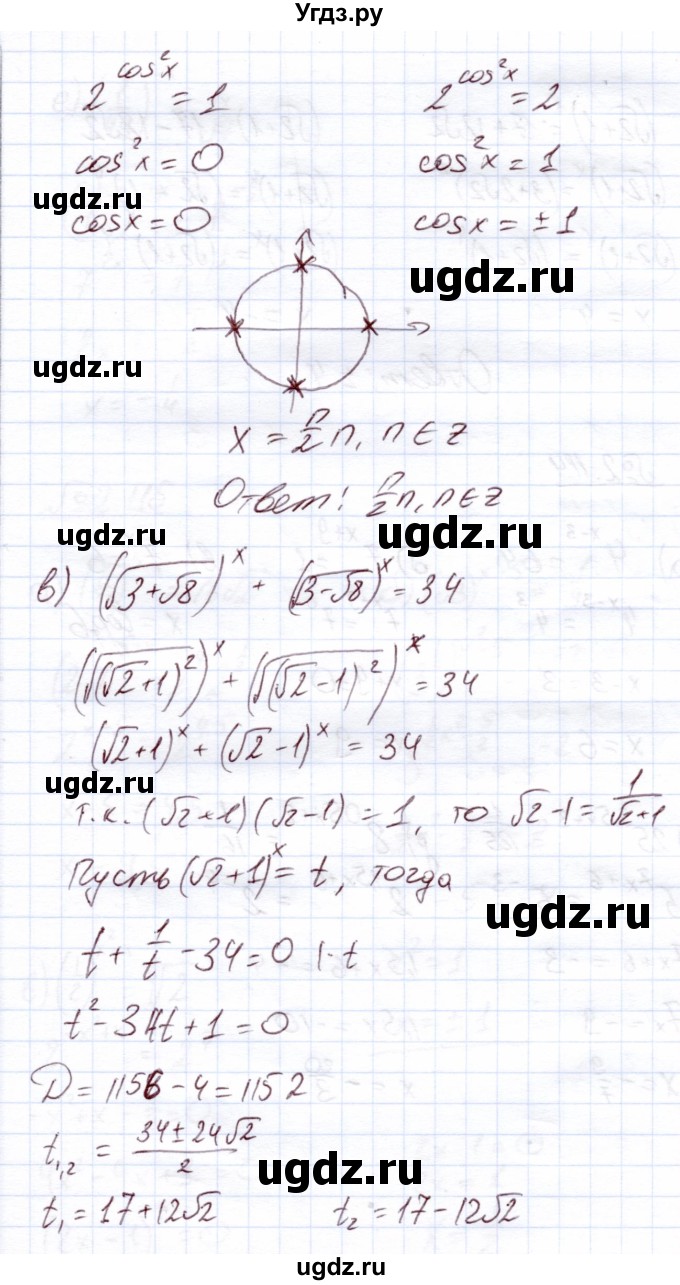 Угдз.ру
2^(cos²x) = 1    2^(cos²x) = 2
cos²x = 0    cos²x = 1
ugdz.ru
cosx = 0    cosx = ±1
ugdz.ru
ugdz.ru
x = π/2 n, n ∈ Z
Ответ: π/2 n, n ∈ Z
ugdz.ru
ugdz.ru
в) (√(3+√8))^x + (√(3-√8))^x = 34
(√((√2+1)²))^x + (√((√2-1)²))^x = 34
(√2+1)^x + (√2-1)^x = 34
ugdz.ru
т.к. (√2+1)(√2-1) = 1, то √2-1 = 1/(√2+1)
Пусть (√2+1)^x = t, тогда
ugdz.ru
t + 1/t - 34 = 0 | · t
t² - 34t + 1 = 0
D = 1156 - 4 = 1152
t₁,₂ = (34 ± 24√2)/2
ugdz.ru
t₁ = 17+12√2    t₂ = 17-12√2
ugdz.ru